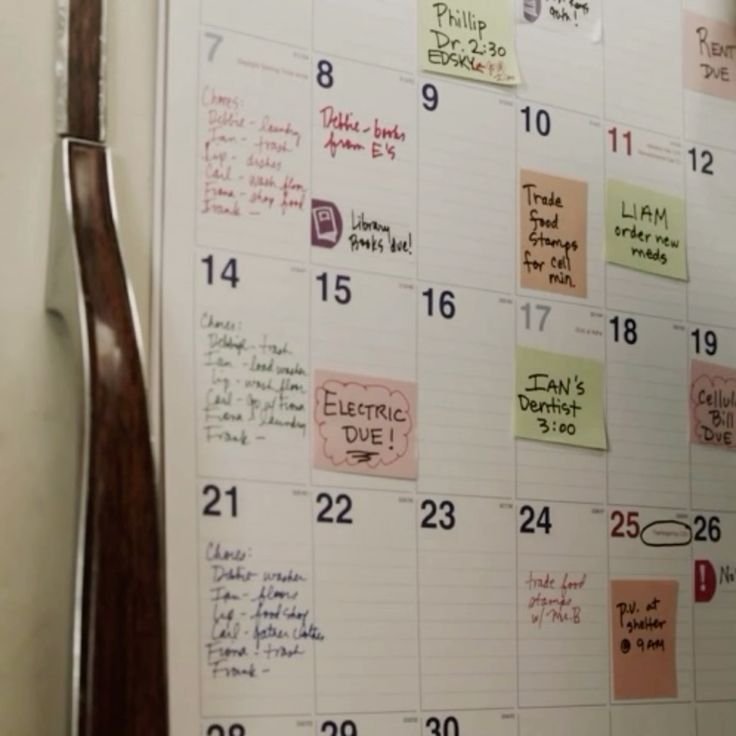 Phillip
Dr. 2:30
EDSKY
RENT
DUE
7
Chores:
Debbie - laundry
Ian - trash
Lip - dishes
Carl - wash floor
Fiona - shop food
Frank -
8
Debbie - books
from E's
Library
Books due!
9
10
Trade
food
stamps
for cell
min.
11
LIAM
order new
meds
12
14
Chores:
Debbie - trash
Ian - load washer
Lip - wash floor
Carl - go w/ Fiona
Fiona - laundry
Frank -
15
ELECTRIC
DUE!
16
17
IAN'S
Dentist
3:00
18
19
Cellul
Bill
DUE
21
Chores:
Debbie washer
Ian - floors
Lip - food shop
Carl - gather clothes
Fiona - trash
Frank -
22
23
24
trade food
stamps
w/ Mr. B
25
Thanksgiving
P.V. at
shelter
@ 9AM
26
!
No
28
29
30